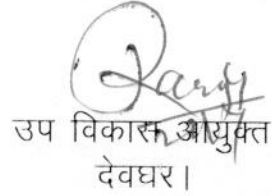 उप विकास आयुक्त
देवघर।